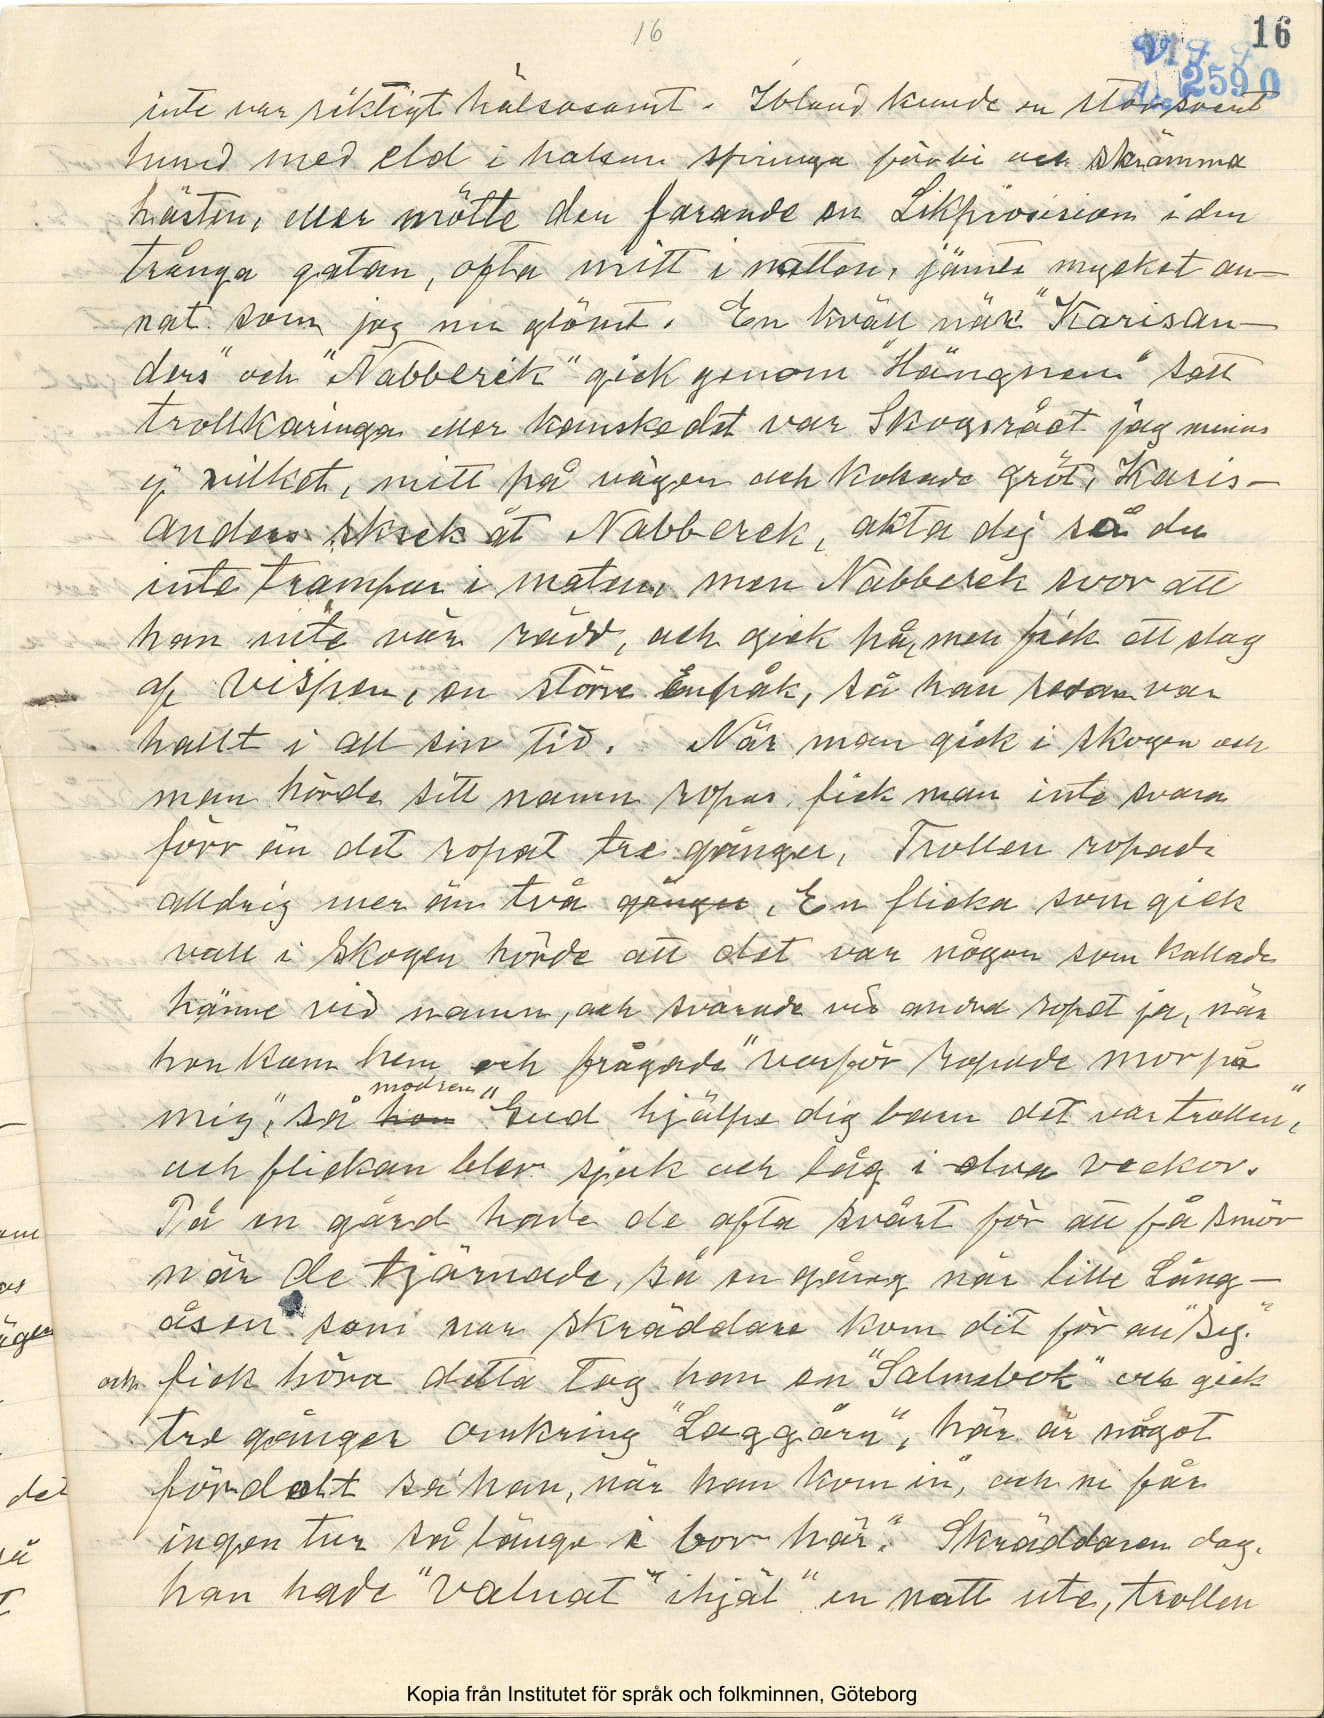 16
16
V.F.F.
2590
inte var riktigt hälsosamt. Ibland kunde en stor svart
hund med eld i halsen springa förbi och skrämma
hästen, eller mötte den farande en Likprosesion i den
trånga gatan, ofta mitt i natten, jämte mycket an-
nat som jag nu glömt. En kväll när "Karisan-
ders" och "Nabberek" gick genom "Hängnen" satt
trollkaringa eller kanske det var Skogsrået jag minns
ej vilket, mitt på vägen och kokade gröt, Karis-
anders skrek åt Nabberek, akta dig så du
inte trampar i maten, men Nabberek svor att
han inte var rädd, och gick på, men fick ett slag
af vispen, en större enpåk, så han sedan var
hallt i all sin tid. När man gick i skogen och
man hörde sitt namn ropas, fick man inte svara
förr än det ropat tre gånger, Trollen ropade
alldrig mer än två gånger, En flicka som gick
vall i skogen hörde att det var någon som kallade
hänne vid namn, och svarade vid andra ropet ja, när
hon kom hem och frågade "varför ropade mor på
modren
mig," sa hon "Gud hjälpe dig barn det var trollen",
och flickan blev sjuk och låg i elva veckor.
På en gård hade de ofta svårt för att få smör
när de tjärnade, så en gång när lille Lång-
åsen som var skräddare kom dit för att "sy."
och fick höra detta tog han en "Salmebok" och gick
tre gånger omkring "Laggårn", här är något
fördolt sa' han, när han kom in, och ni får
ingen tur så länge i bor här." Skräddaren dog.
han hade "valnat" "ihjäl" en natt ute, trollen
Kopia från Institutet för språk och folkminnen, Göteborg